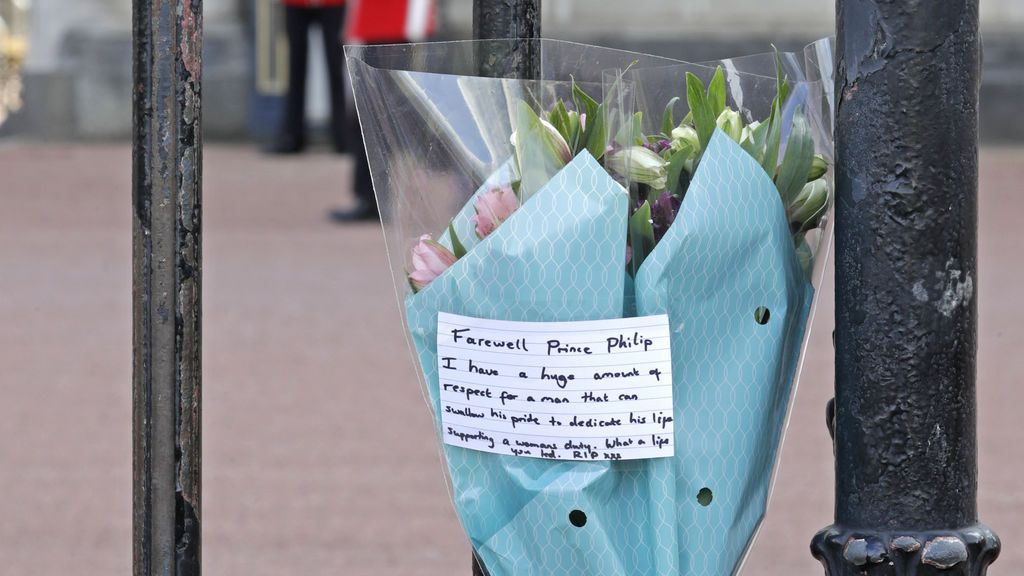 Farewell Prince Philip
I have a huge amount of
respect for a man that can
swallow his pride to dedicate his life
supporting a womans duty. What a life
you led. RIP xxx